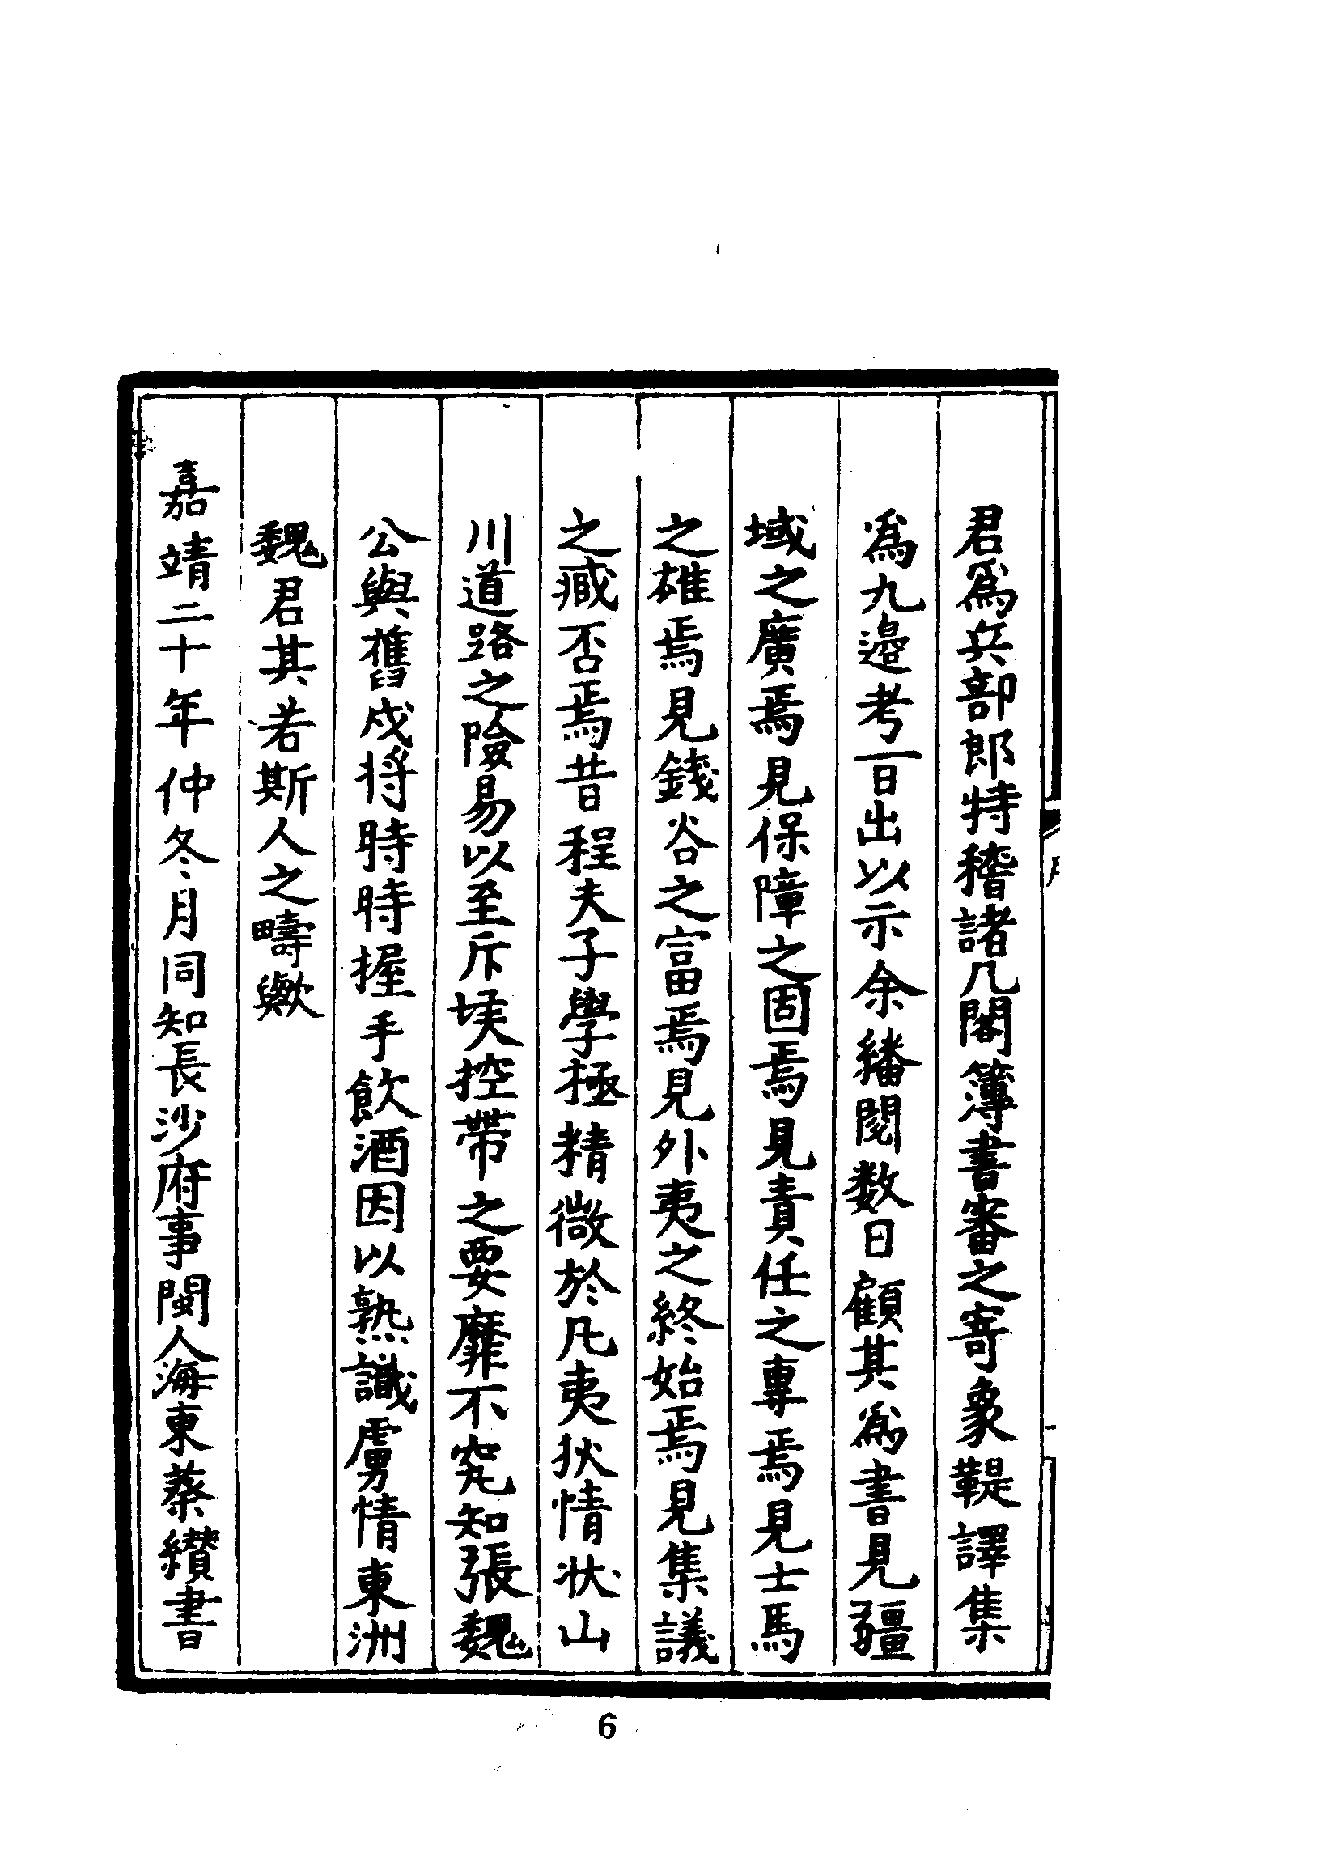 君為兵部郎特稽諸几閣簿書審之寄象鞮譯集
為九邉考一日出以示余繙閱数日顧其為書見疆
域之廣焉見保障之固焉見責任之專焉見士馬
之雄焉見錢谷之富焉見外夷之終始焉見集議
之臧否焉昔程夫子學極精微於凡夷狄情狀山
川道路之險易以至斥堠控帶之要靡不究知張魏
公與舊戍將時時握手飲酒因以熟識虜情東洲
魏君其若斯人之疇歟
嘉靖二十年仲冬月同知長沙府事閩人海東蔡纘書
6